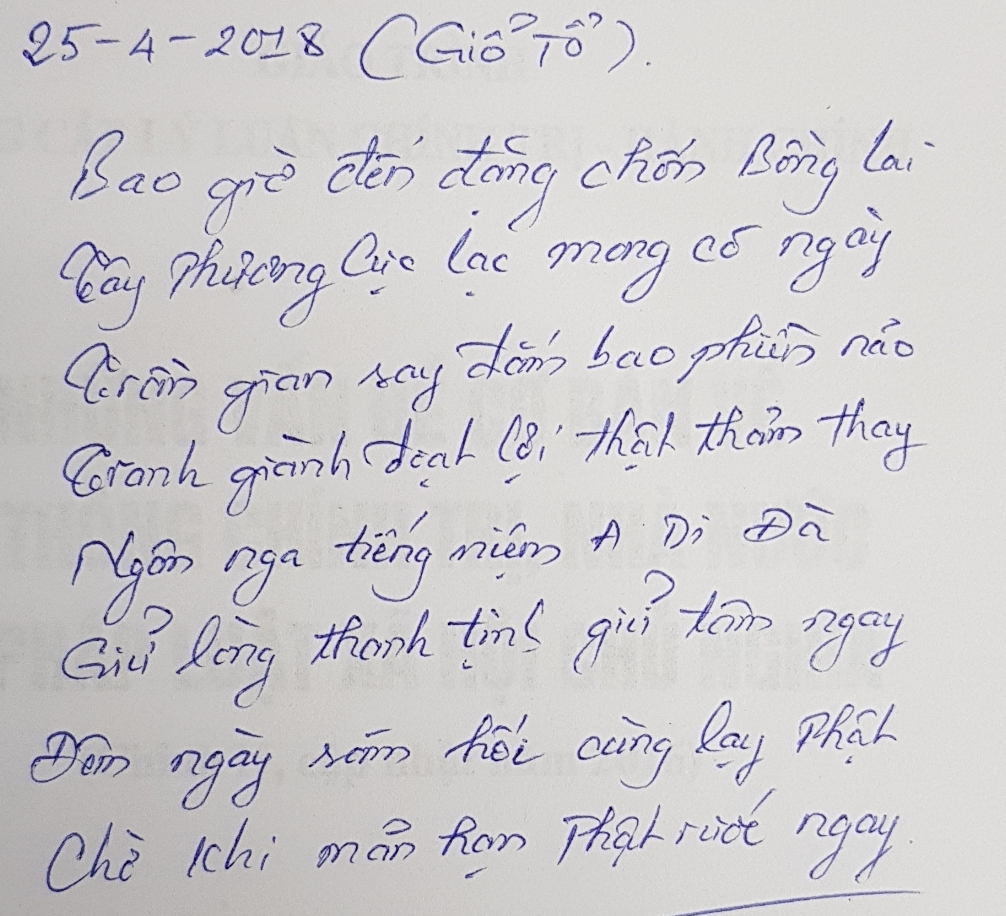 25-4-2018 (Giổ Tổ).
Bao giờ đến đặng chốn Bồng lai
Tây Phương Cực lạc mong có ngày
Trần gian say đắm bao phiền nảo
Tranh giành đoạt lợi thật thảm thay
Ngâm nga tiếng niệm A Di Đà
Giử lòng thanh tịnh giử tâm ngay
Đêm ngày sám hối cùng lạy Phật
Chờ khi mãn hạn Phật rước ngay.